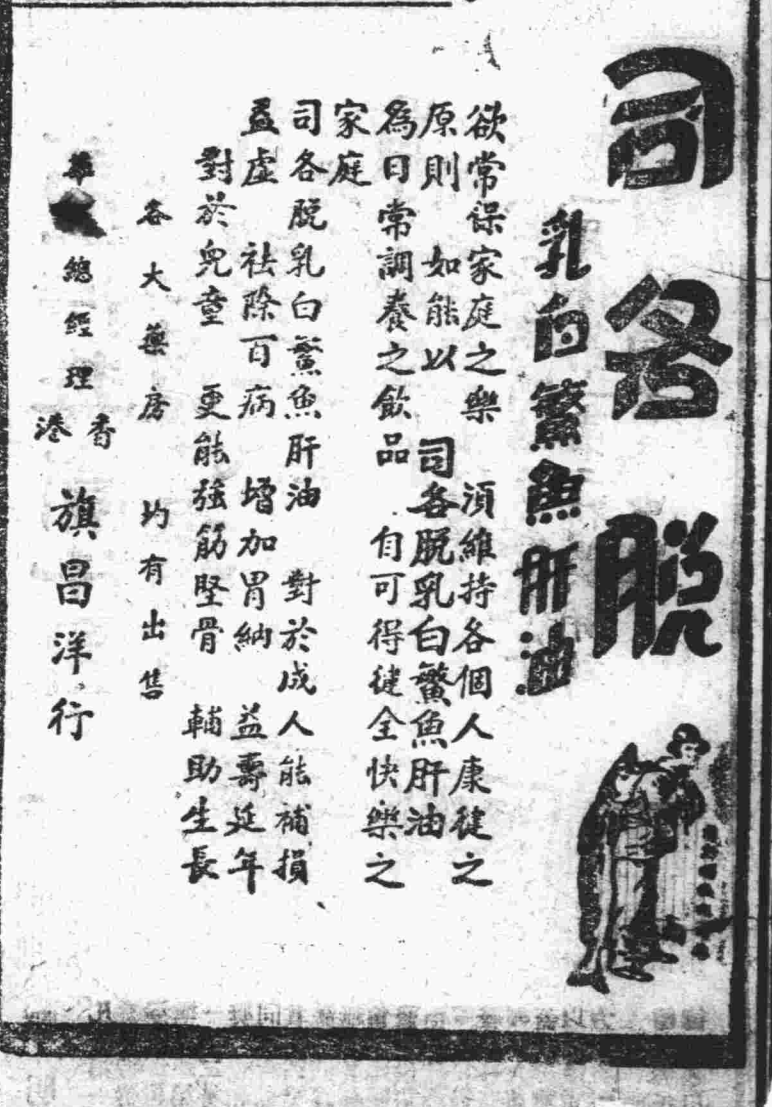 司各脱
乳白鰵魚肝油
欲常保家庭之樂 須維持各個人康健之
原則 如能以 司各脱乳白鰵魚肝油
為日常調養之飲品 自可得健全快樂之
家庭
司各脱乳白鰵魚肝油 對於成人能補損
益虛 祛除百病 增加胃納 益壽延年
對於兒童 更能強筋堅骨 輔助生長
各大藥房 均有出售
華 總經理 香港 旗昌洋行